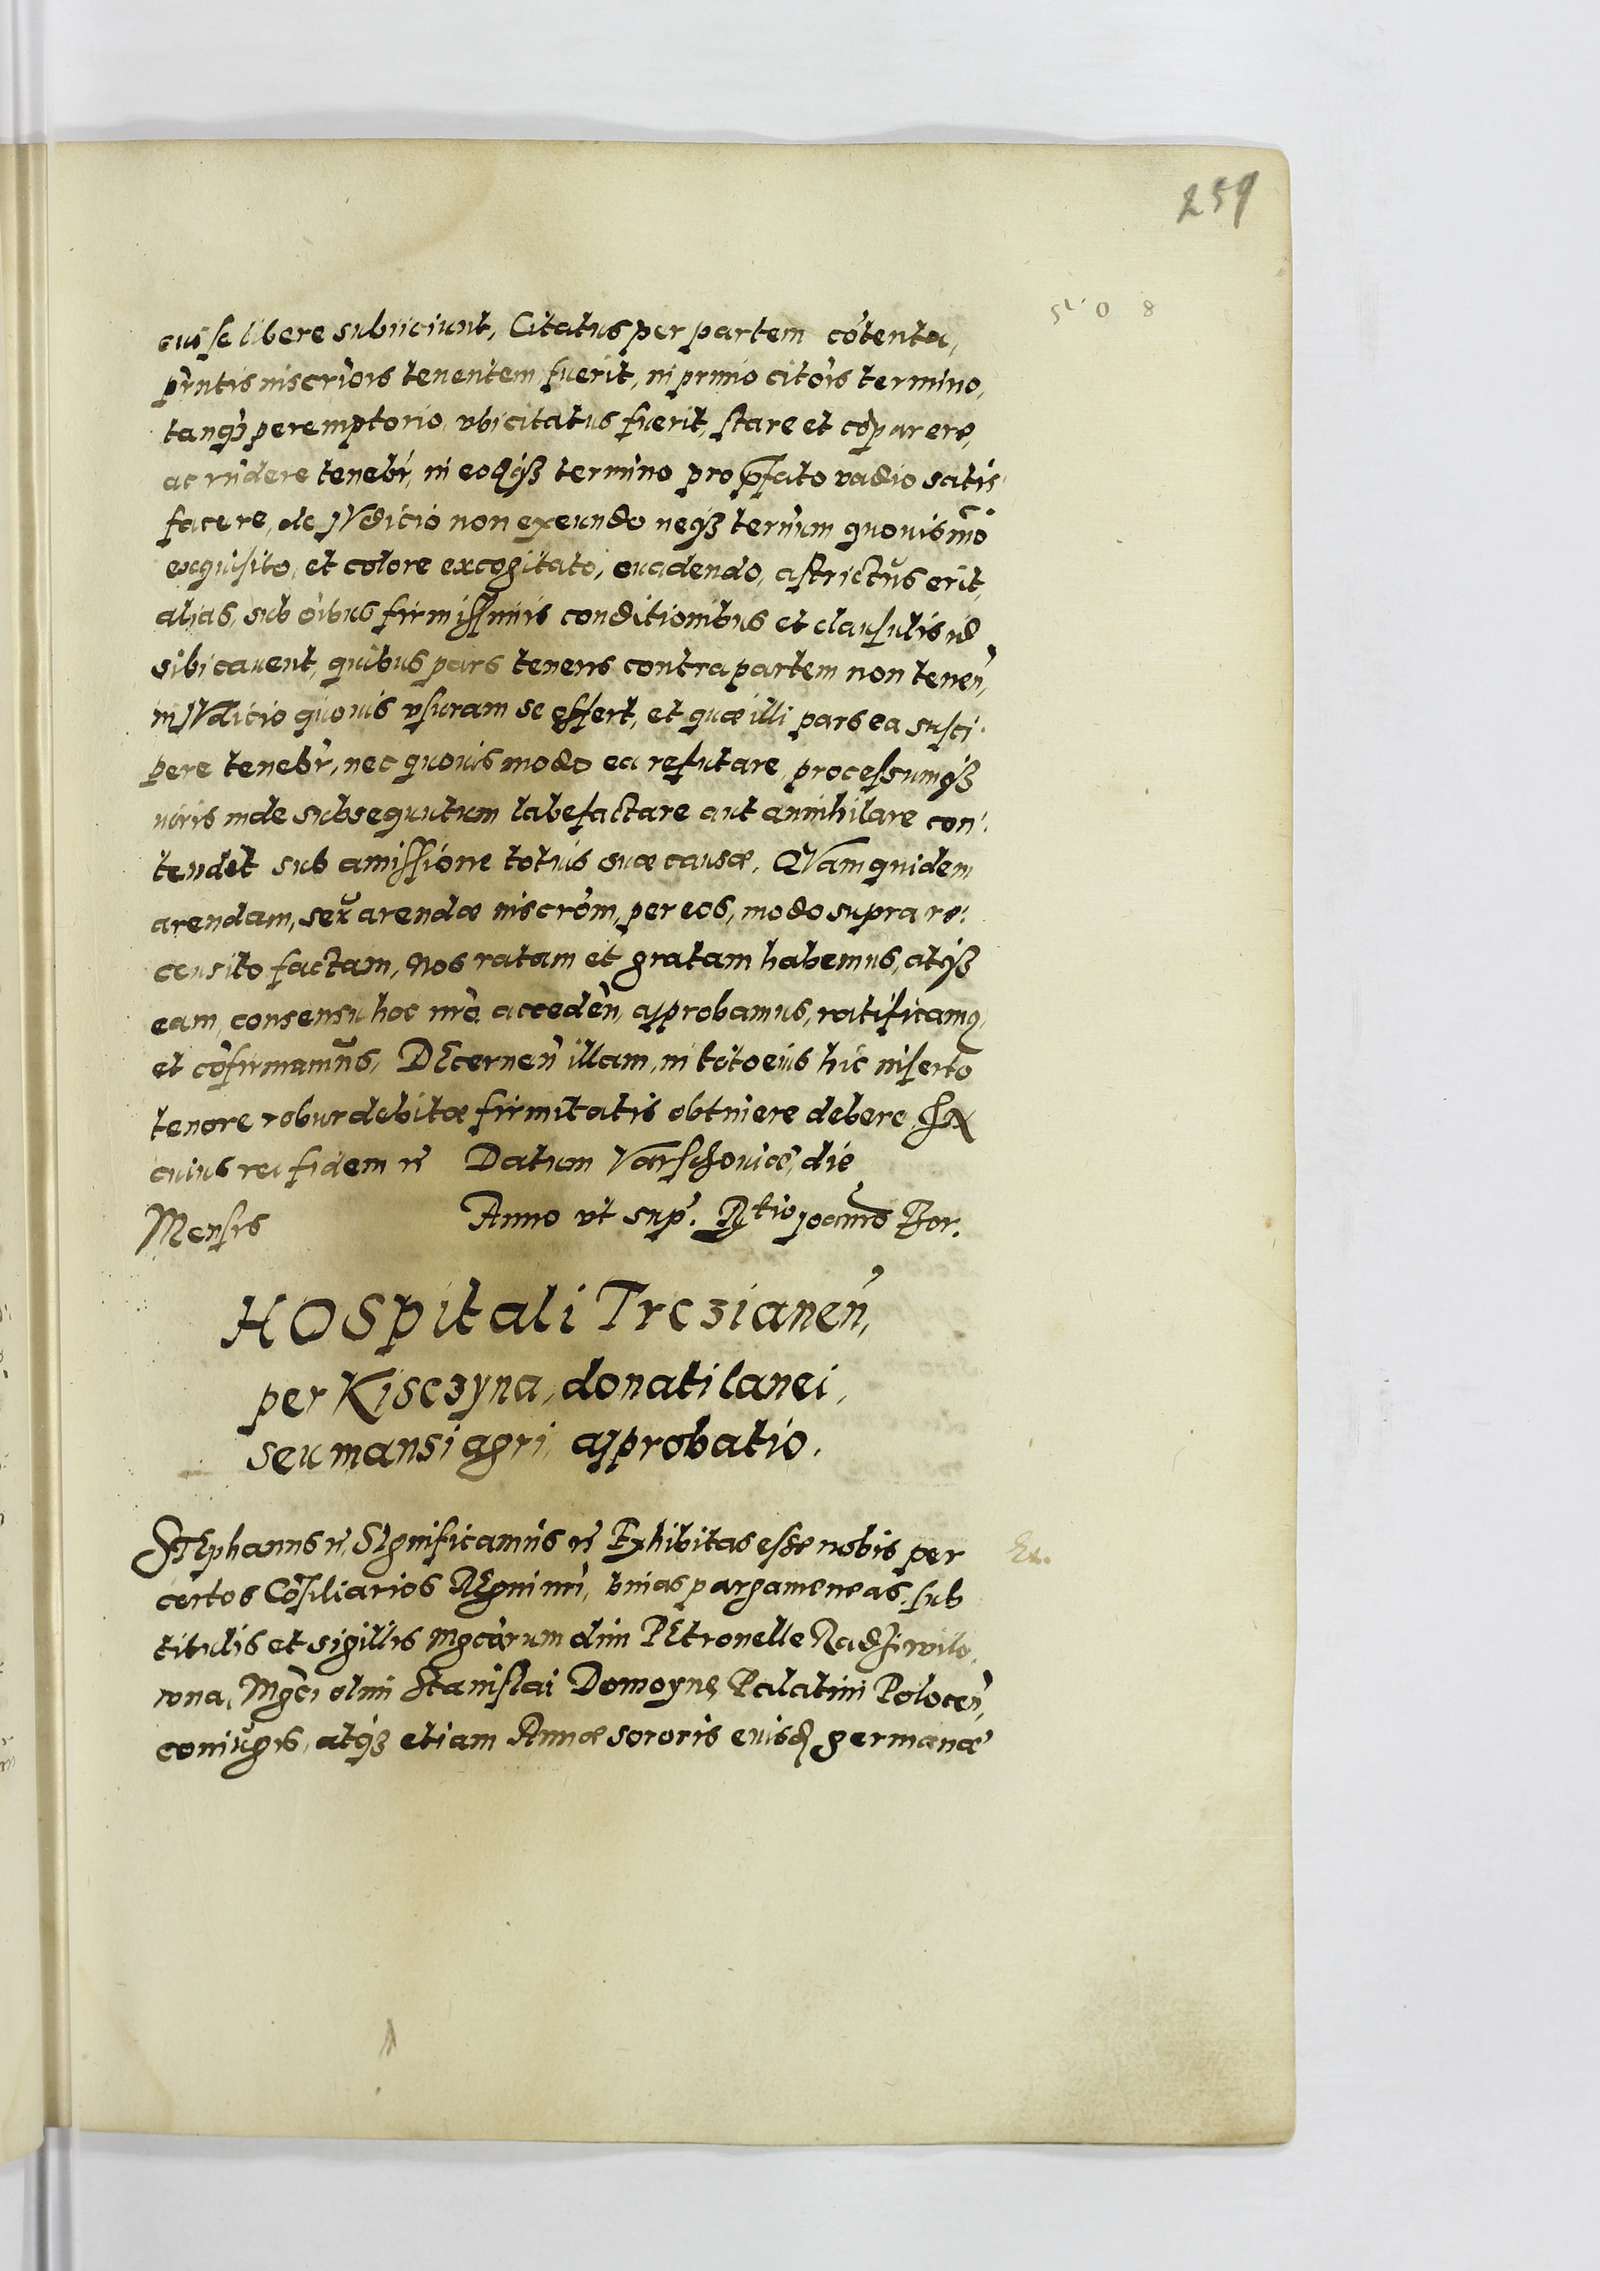 259
cui se libere subiiciunt, Citatus per partem cōtenta,
pñtis inscriõis tenentem fuerit, in primo citõis termino,
tanq̃ȝ peremptorio, vbi citatus fuerit, stare et cõparere,
ac rñdere tenebr̃, in eodq̃ȝ termino pro p̃fato vadio satis
facere, de JVdicio non exeundo neq̃ȝ termum quouis mõ
exquisito, et colore excogitato, euadendo, astrictus erit,
alias, sub oĩbus firmissimis conditionibus et clausulis id
sibi cauent, quibus pars tenens contra partem non tenen̄,
in JVditio quouis vsuram se effert, et quæ illi pars ea susci-
pere tenebr̃, nec quouis modo ea refutare, processumq̃ȝ
iuris inde subsequutum labefactare aut annihilare con-
tendet sub amissione totius suæ causæ. QVam quidem
arendam, seu arendæ inscrõm, per eos, modo supra re-
censito factam, Nos ratam et gratam habemus, atq̃ȝ
eam, consensu hoc nrõ acceden̄, approbamus, ratificamq,
et cõfirmamus, DEcernen̄ illam, in toto eius hic inserto
tenore robur debitæ firmitatis obtinere debere, In
cuius rei fidem rc̃ Datum Varschouiæ, die
Mensis Anno vt sup̃. Rtio Joannis Bor.
HOSpitali Trczianen̄,
per Kisczyna, donati lanei,
seu mansi agri, approbatio.
STEphanus rc̃, SIgnificamus rc̃ Exhibitas esse nobis per
certos Cõsiliarios REgni nri, binas pargameneas, sub
titulis et sigillis Mgcarum dñi PEtronelle Radziwilo,
wna, Mgci olim Stanislai Domoyne, Palatini Polocen̄,
coniugis, atq̃ȝ etiam Annæ sororis euisd germanæ